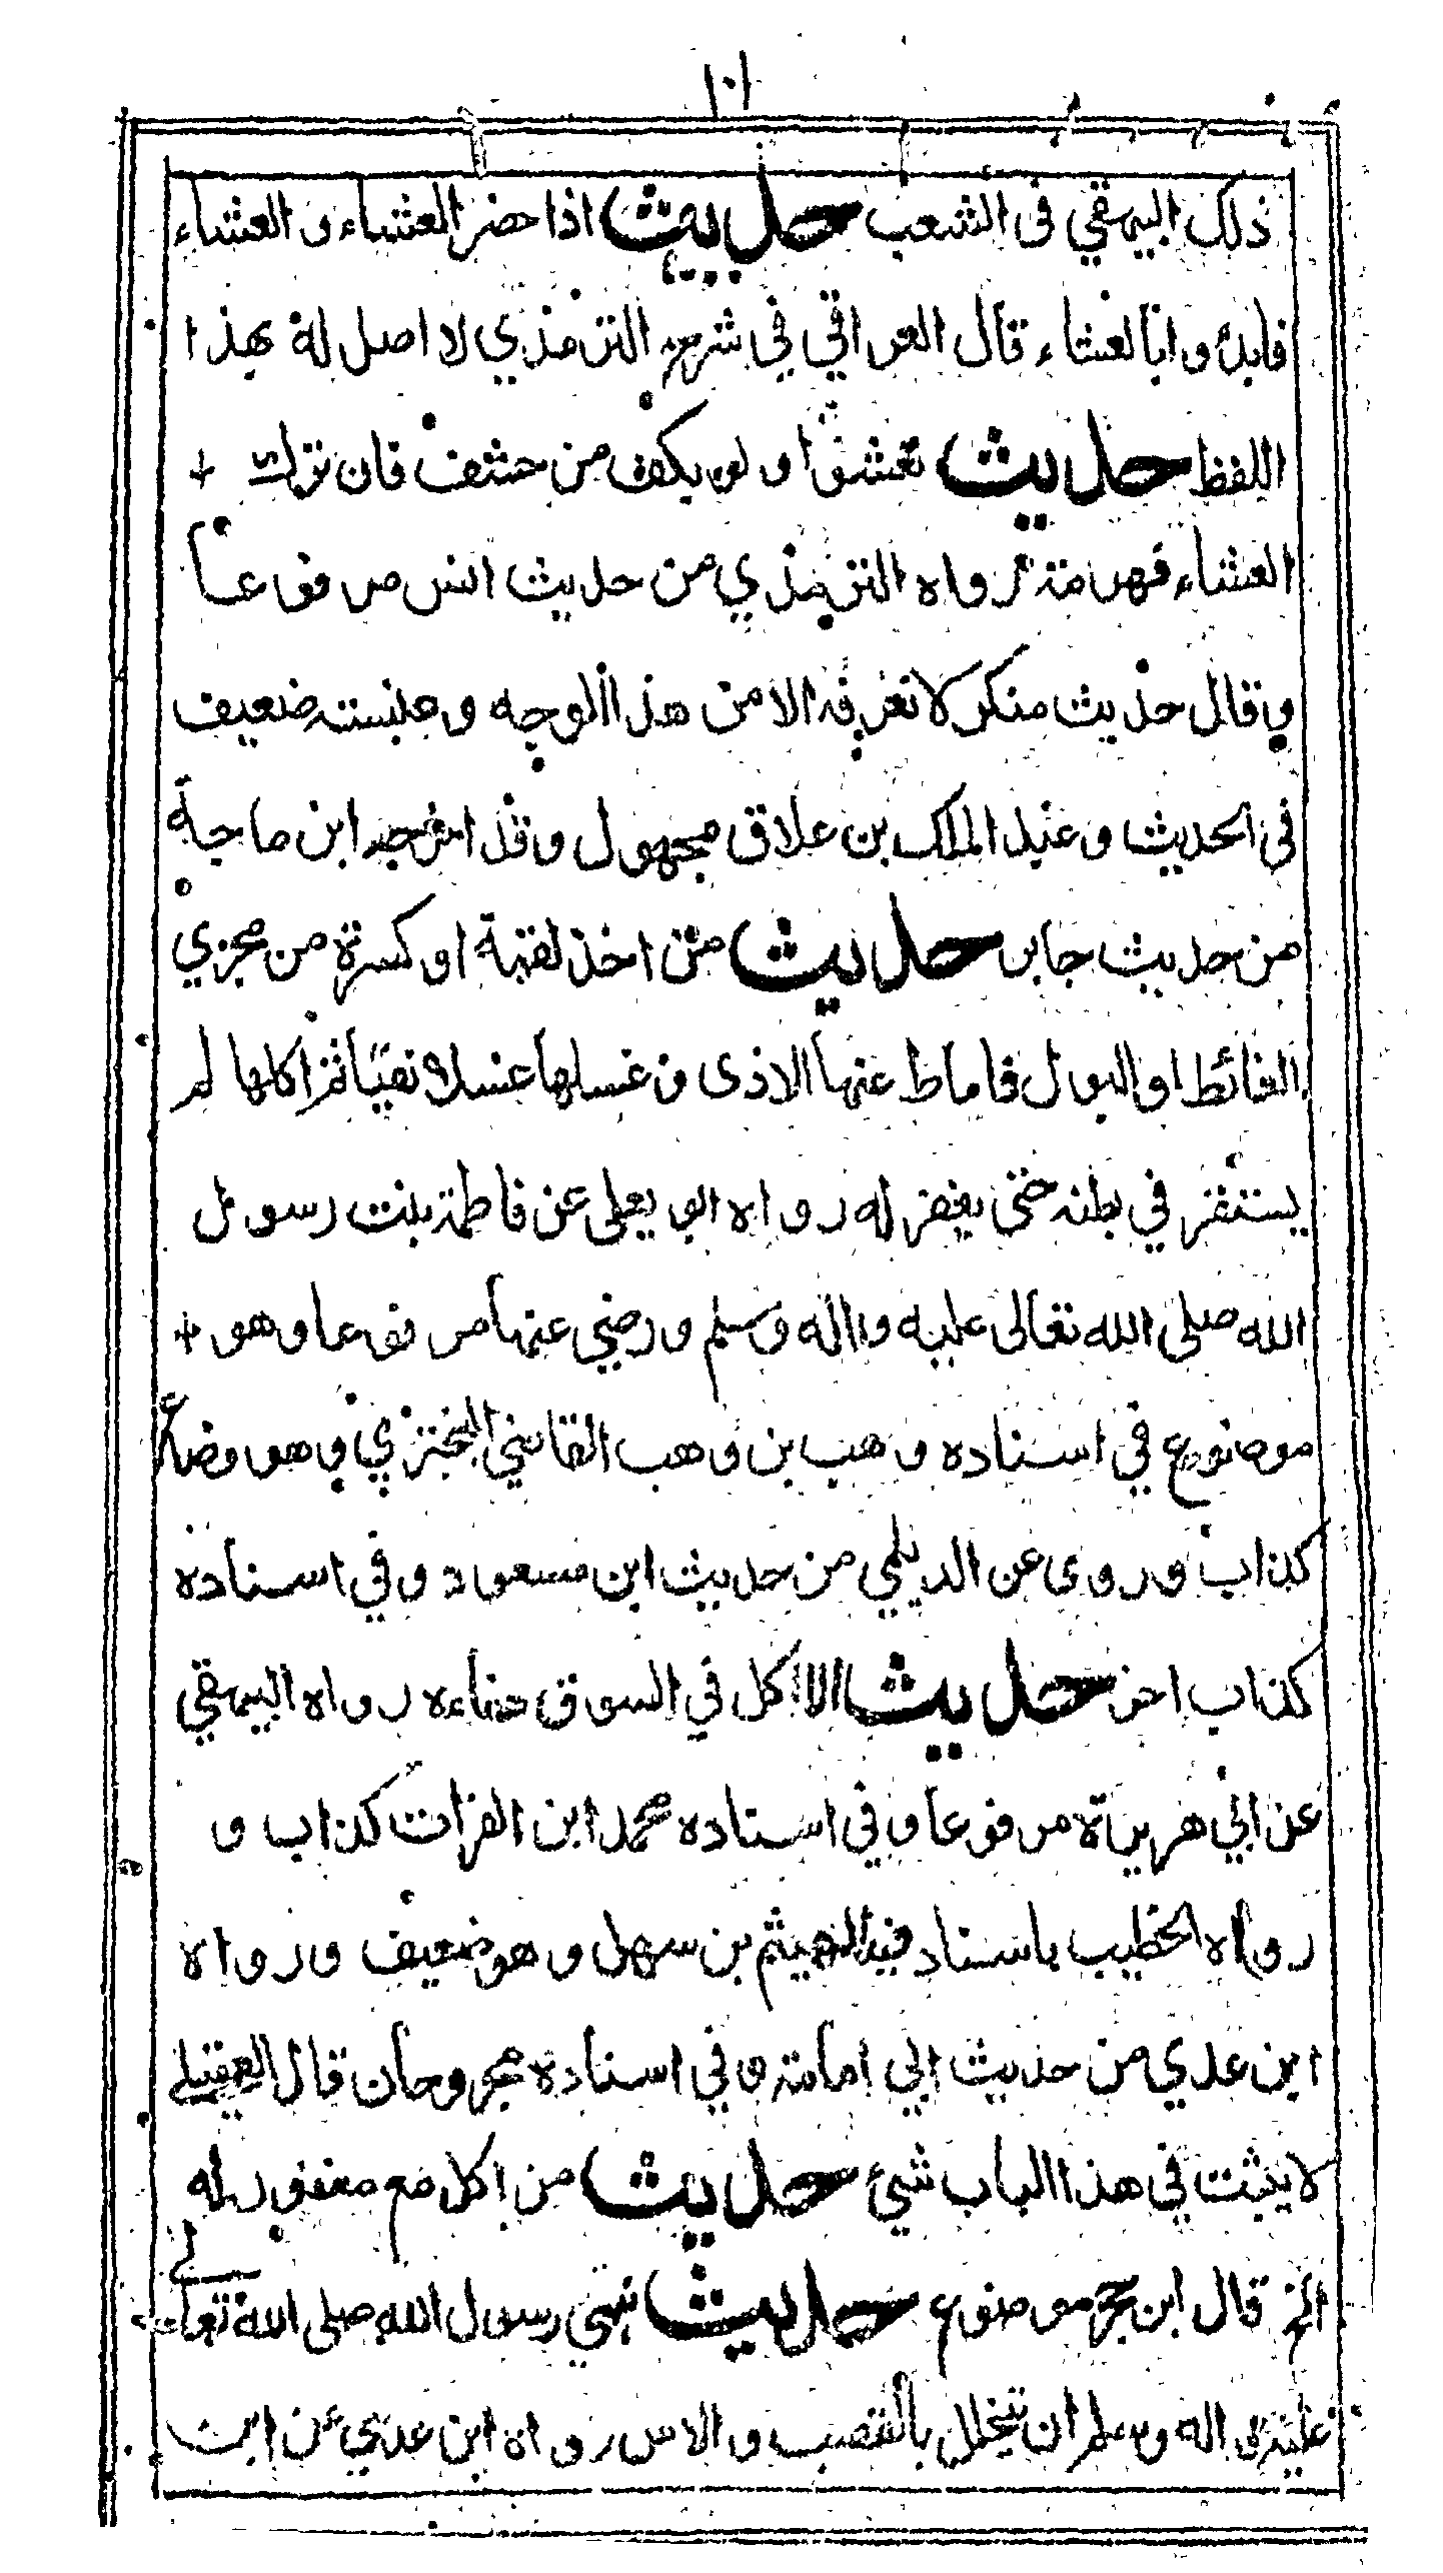 ١٠١
ذلك البيهقي فى الشعب حديث اذا حضر العشاء و العشاء
فابدؤا بالعشاء قال العراقي في شرح الترمذي لا اصل له بهذا
اللفظ حديث تعشوا و لو بكف من حشف فان ترك
العشاء مهرمة رواه الترمذي من حديث انس مرفوعا
وقال حديث منكر لا نعرفه الا من هذا الوجه و عنبسة ضعيف
فى الحديث و عبد الملك بن علاق مجهول و قد اخرجه ابن ماجة
من حديث جابر حديث من اخذ لقمة او كسرة من مجرى
الغائط او البول فاماط عنها الاذى و غسلها غسلا نقيا ثم اكلها لم
يستقر في بطنه حتى يغفر له رواه ابو يعلى عن فاطمة بنت رسول
الله صلى الله تعالى عليه واله وسلم ورضي عنها مرفوعا وهو
موضوع في اسناده وهب بن وهب القاضي البختري وهو وضاع
كذاب وروى عن الديلمي من حديث ابن مسعود وفي اسناده
كذاب اخر حديث الاكل في السوق دناءة رواه البيهقي
عن ابي هريرة مرفوعا وفي اسناده محمد ابن الفرات كذاب و
رواه الخطيب باسناد فيه الهيثم بن سهل وهو ضعيف ورواه
ابن عدي من حديث ابي امامة وفي اسناده مجروحان قال العقيلي
لا يثبت في هذا الباب شيئ حديث من اكل مع مغفور له
الخ قال ابن حجر موضوع حديث نهي رسول الله صلى الله تعالى
عليه و اله وسلم ان يتخلل بالقصب و الاس رواه ابن عدي عن ابن